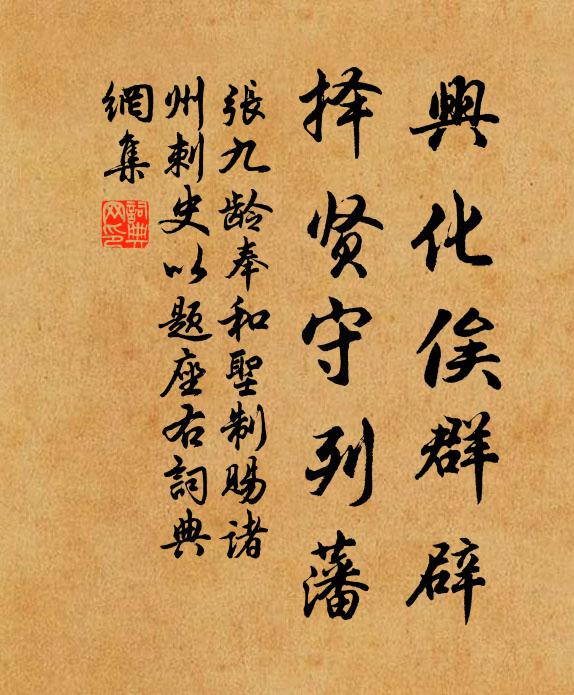 興化俟群辟
择贤守列藩
張九龄奉和聖制賜诸
州刺史以题座右詞典
網集
詞典網印